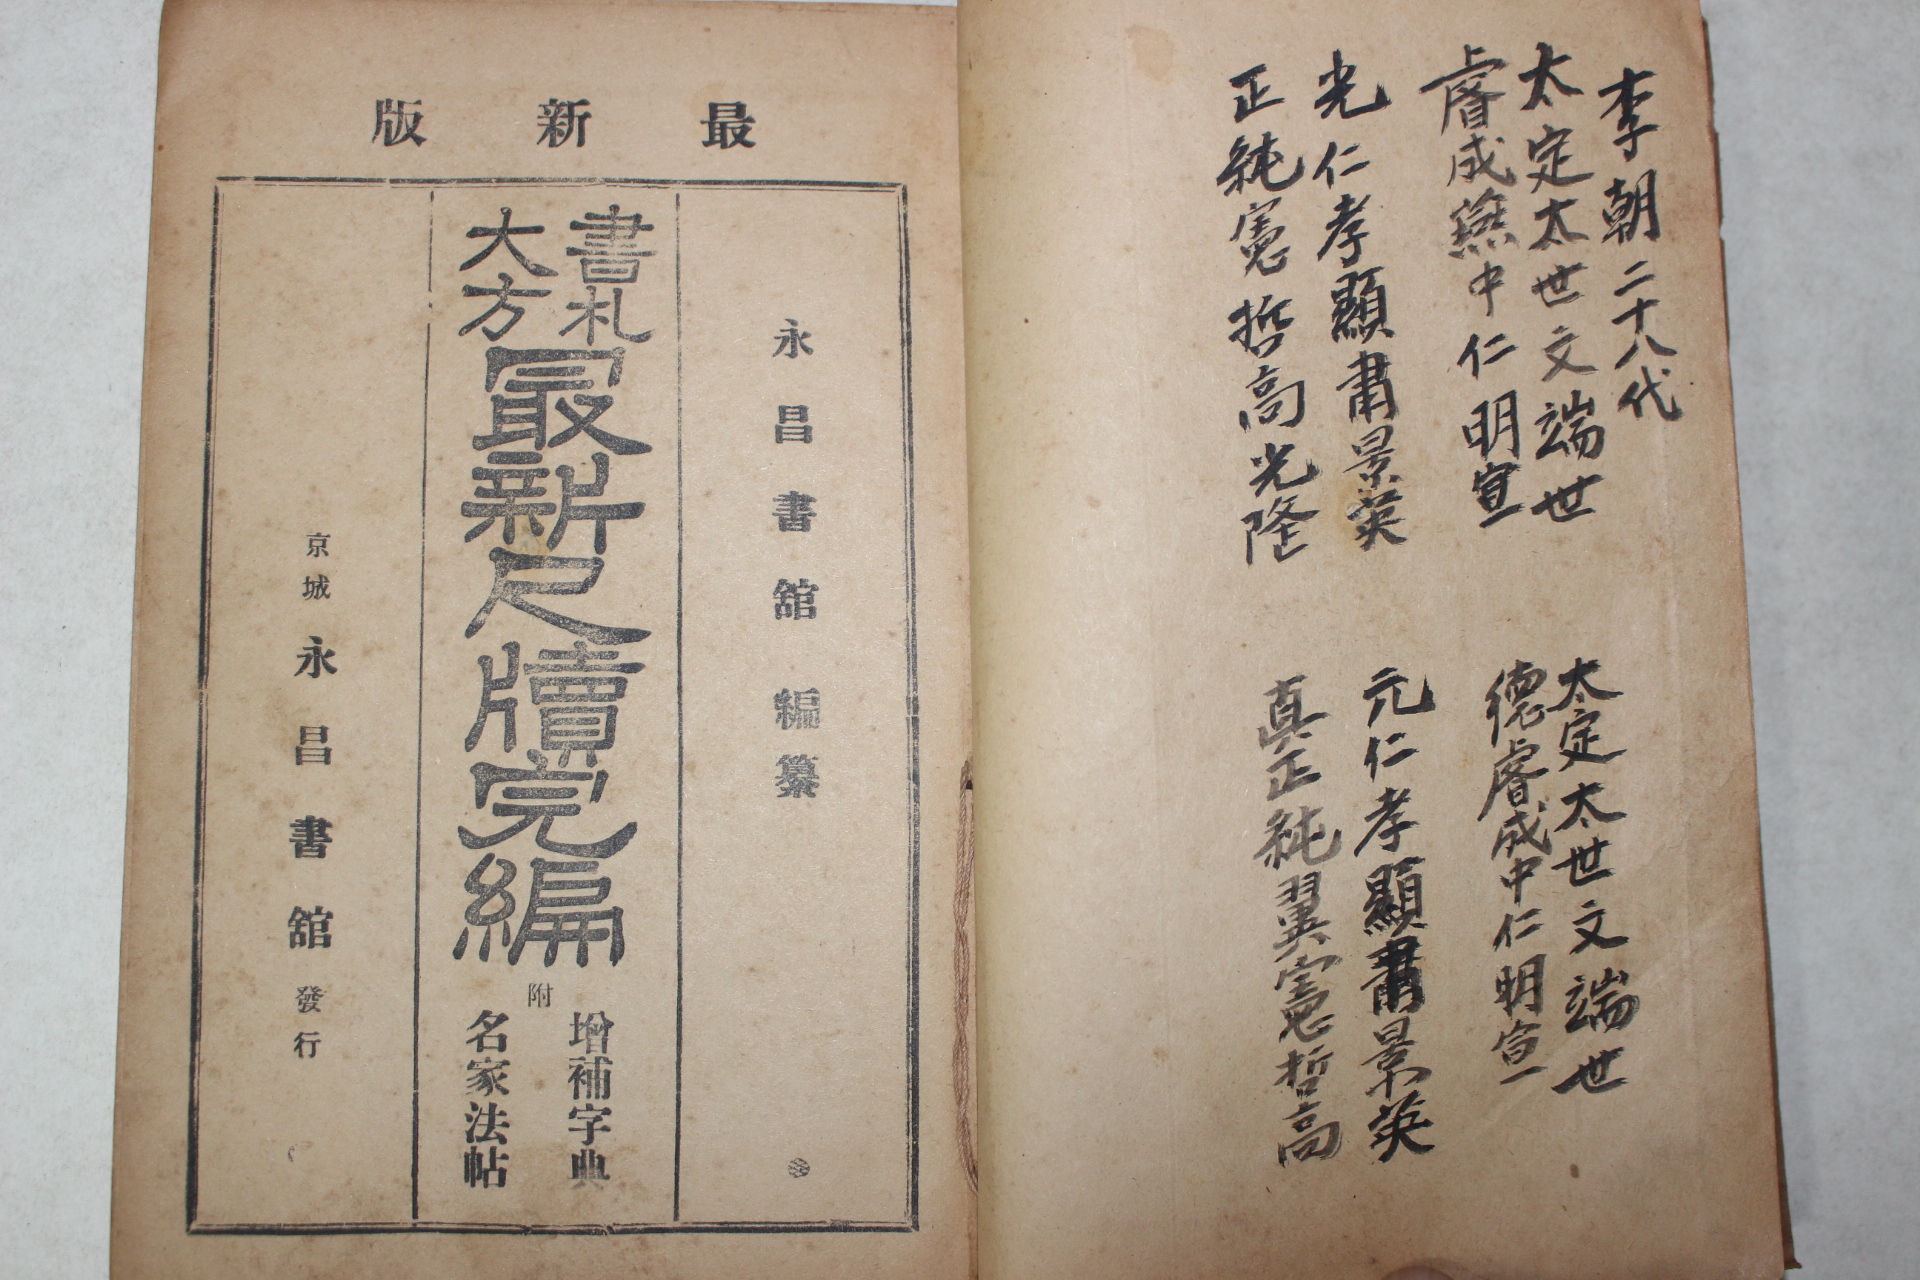 李朝二十八代
太定太世文端世
睿成燕中仁明宣
光仁孝顯肅景英
正純憲哲高光隆
太定太世文端世
德睿成中仁明宣
元仁孝顯肅景英
真正純翼憲哲高
最新版
永昌書舘編纂
書札
大方
最新尺牘完編
附
增補字典
名家法帖
京城永昌書舘發行